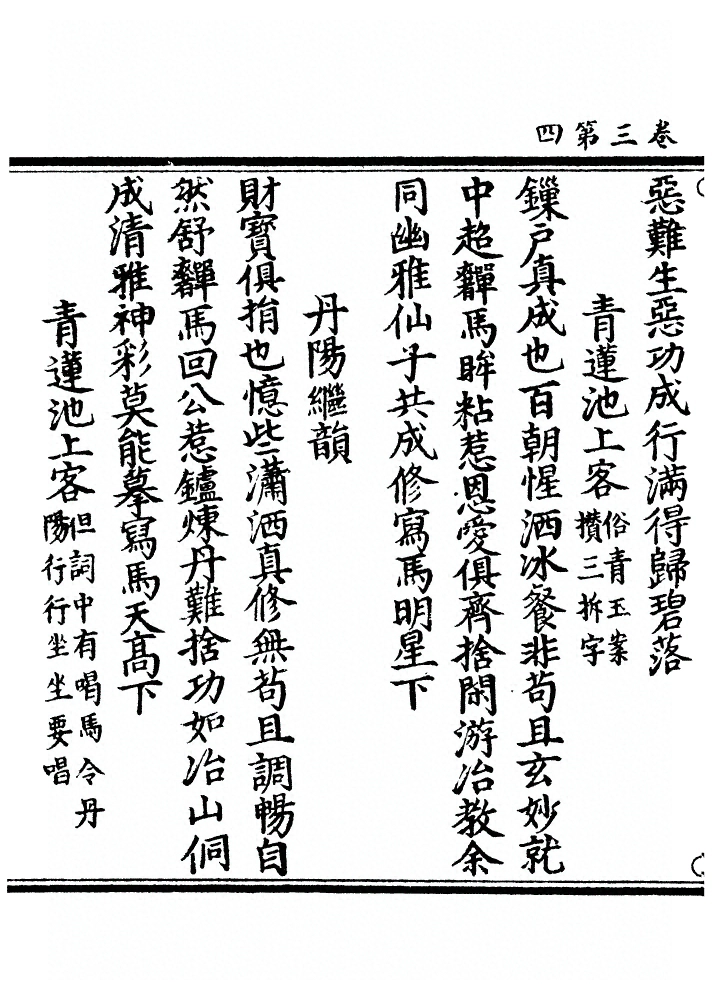 卷三第四
惡難生惡功成行滿得歸碧落
青蓮池上客俗青玉案
攢三拆字
鏁戶真成也百朝惺洒冰餐非茍且玄妙就
中超軃馬眸粘惹恩愛俱齊捨閑游冶教余
同幽雅仙子共成修寫馬明星下
丹陽繼韻
財寶俱捐也憶些瀟洒真修無茍且調暢自
然舒軃馬回公惹鑪煉丹難捨功如冶山侗
成清雅神彩莫能摹寫馬天高下
青蓮池上客但詞中有喝馬令丹
陽行行坐坐要唱